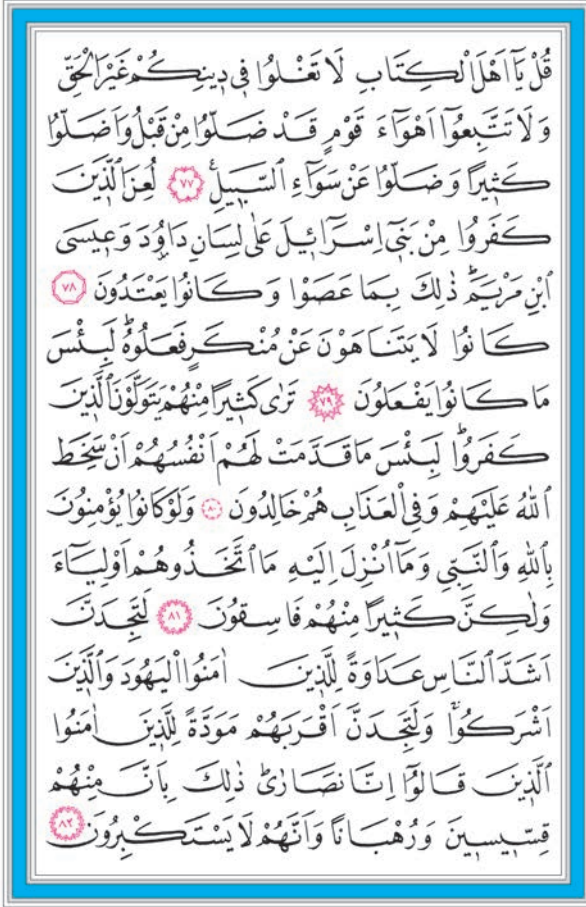 قُلْ يَٓا اَهْلَ الْكِتَابِ لَا تَغْلُوا ف۪ي د۪ينِكُمْ غَيْرَ الْحَقِّ
وَلَا تَتَّبِعُٓوا اَهْوَٓاءَ قَوْمٍ قَدْ ضَلُّوا مِنْ قَبْلُ وَاَضَلُّوا
كَث۪يرًا وَضَلُّوا عَنْ سَوَٓاءِ السَّب۪يلِ۟ ﴿٧٧﴾ لُعِنَ الَّذ۪ينَ
كَفَرُوا مِنْ بَن۪ٓي اِسْرَٓائ۪يلَ عَلٰى لِسَانِ دَاوُ۫دَ وَع۪يسَى
ابْنِ مَرْيَمَۜ ذٰلِكَ بِمَا عَصَوْا وَكَانُوا يَعْتَدُونَ ﴿٧٨﴾
كَانُوا لَا يَتَنَاهَوْنَ عَنْ مُنْكَرٍ فَعَلُوهُۜ لَبِئْسَ
مَا كَانُوا يَفْعَلُونَ ﴿٧٩﴾ تَرٰى كَث۪يرًا مِنْهُمْ يَتَوَلَّوْنَ الَّذ۪ينَ
كَفَرُواۜ لَبِئْسَ مَا قَدَّمَتْ لَهُمْ اَنْفُسُهُمْ اَنْ سَخِطَ
اللّٰهُ عَلَيْهِمْ وَفِي الْعَذَابِ هُمْ خَالِدُونَ ﴿٨٠﴾ وَلَوْ كَانُوا يُؤْمِنُونَ
بِاللّٰهِ وَالنَّبِيِّ وَمَٓا اُنْزِلَ اِلَيْهِ مَا اتَّخَذُوهُمْ اَوْلِيَٓاءَ
وَلٰكِنَّ كَث۪يرًا مِنْهُمْ فَاسِقُونَ ﴿٨١﴾ لَتَجِدَنَّ
اَشَدَّ النَّاسِ عَدَاوَةً لِلَّذ۪ينَ اٰمَنُوا الْيَهُودَ وَالَّذ۪ينَ
اَشْرَكُواۚ وَلَتَجِدَنَّ اَقْرَبَهُمْ مَوَدَّةً لِلَّذ۪ينَ اٰمَنُوا
الَّذ۪ينَ قَالُٓوا اِنَّا نَصَارٰىۜ ذٰلِكَ بِاَنَّ مِنْهُمْ
قِسّ۪يس۪ينَ وَرُهْبَانًا وَاَنَّهُمْ لَا يَسْتَكْبِرُونَ ﴿٨٢﴾